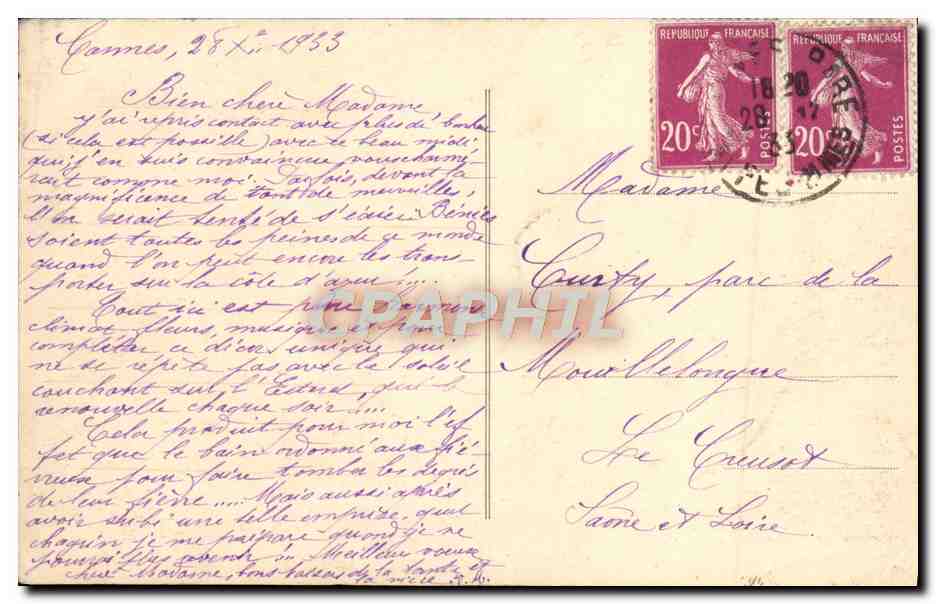 Cannes, 28 Xre 1933
Bien chère Madame
j'ai repris contact avec plus de bonheur
(si cela est possible) avec ce beau midi
qui j'en suis convaincue vous charme-
rait comme moi. Parfois, devant la
magnificence de tant de merveilles,
l'on serait tenté de s'écrier Bénies
soient toutes les peines de ce monde
quand l'on peut encore les trans-
porter sur la côte d'azur !....
Tout ici est pure
climat fleurs, musique pour
compléter ce décor unique qui
ne se répète pas avec le soleil
couchant sur l'Esterel, qui se
renouvelle chaque soir !...
Cela produit pour moi l'ef
fet que le bain ordonné aux fié-
vreux pour faire tomber les degrés
de leur fièvre ..... Mais aussi après
avoir subi une telle emprise, quel
chagrin je me prépare quand je ne
pourrai plus revenir !.. Meilleurs voeux
chère Madame, bons baisers de la tante et
la nièce
REPUBLIQUE FRANÇAISE
20c
POSTES
REPUBLIQUE FRANÇAISE
20c
POSTES
18 20
28 12
33
Madame
Cuity, parc de la
Mouillelongue
Le Creusot
Saône et Loire
CPAPHIL